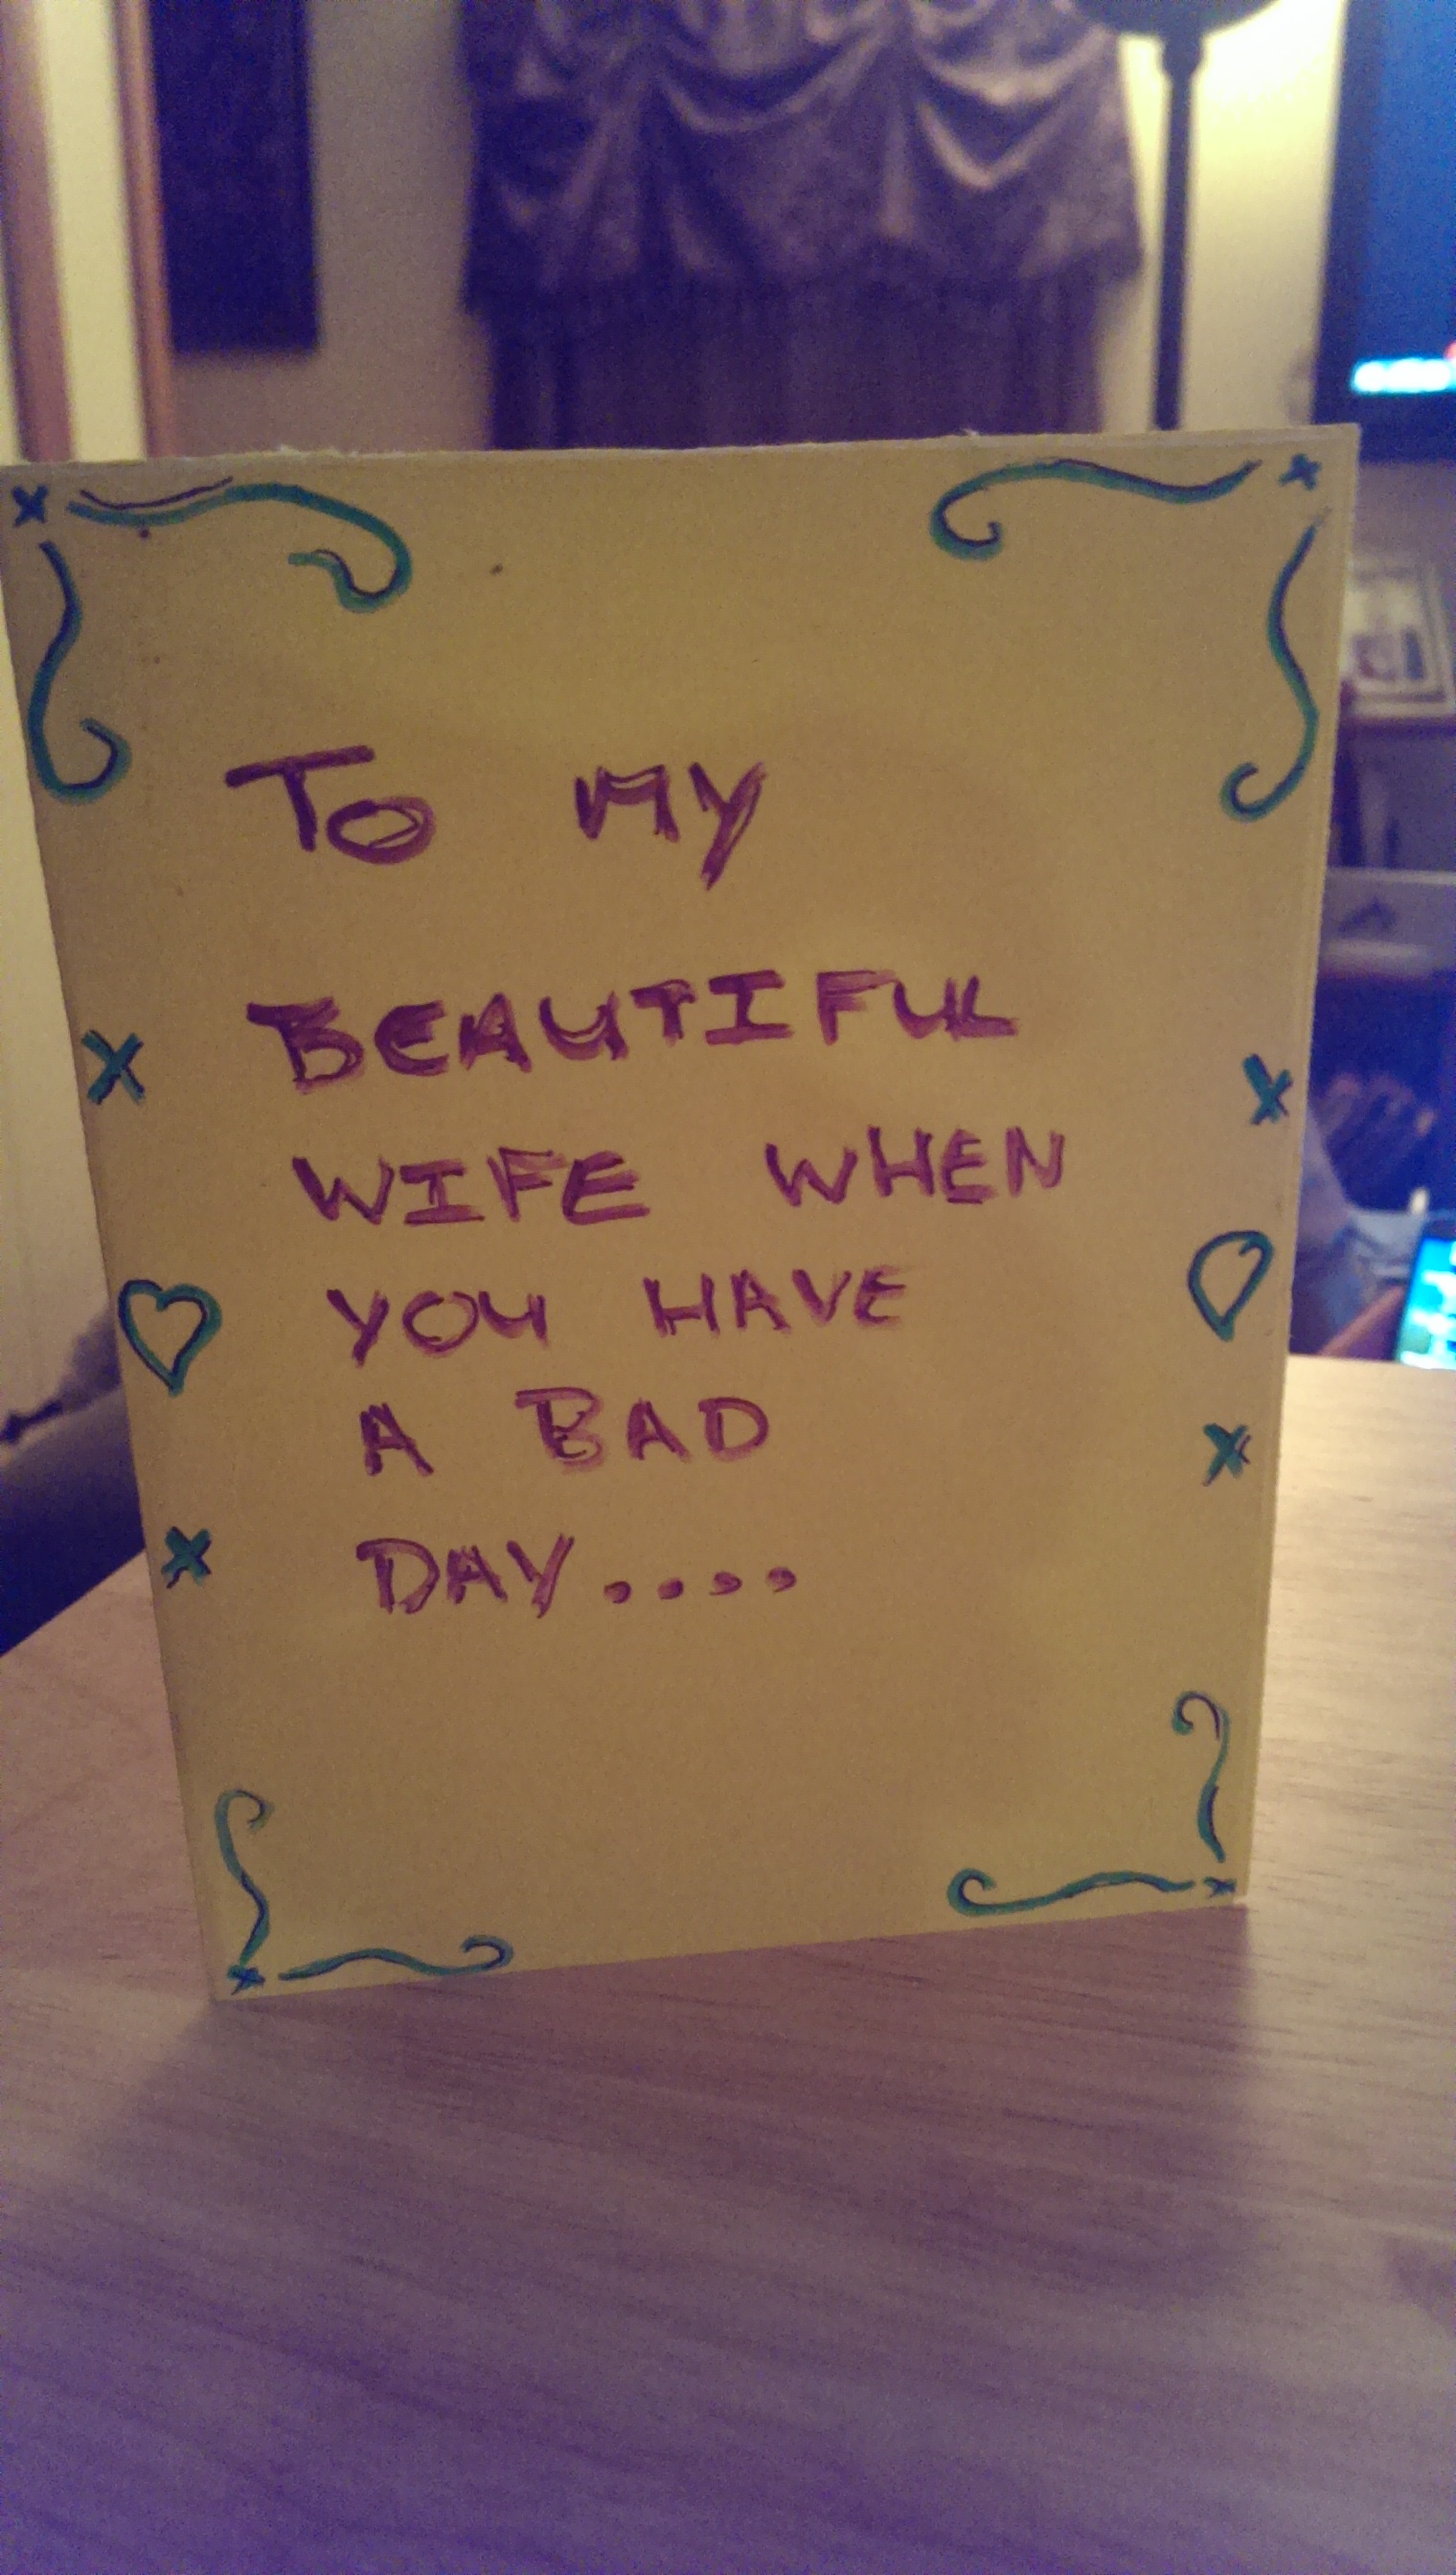 TO MY
BEAUTIFUL
WIFE WHEN
YOU HAVE
A BAD
DAY....